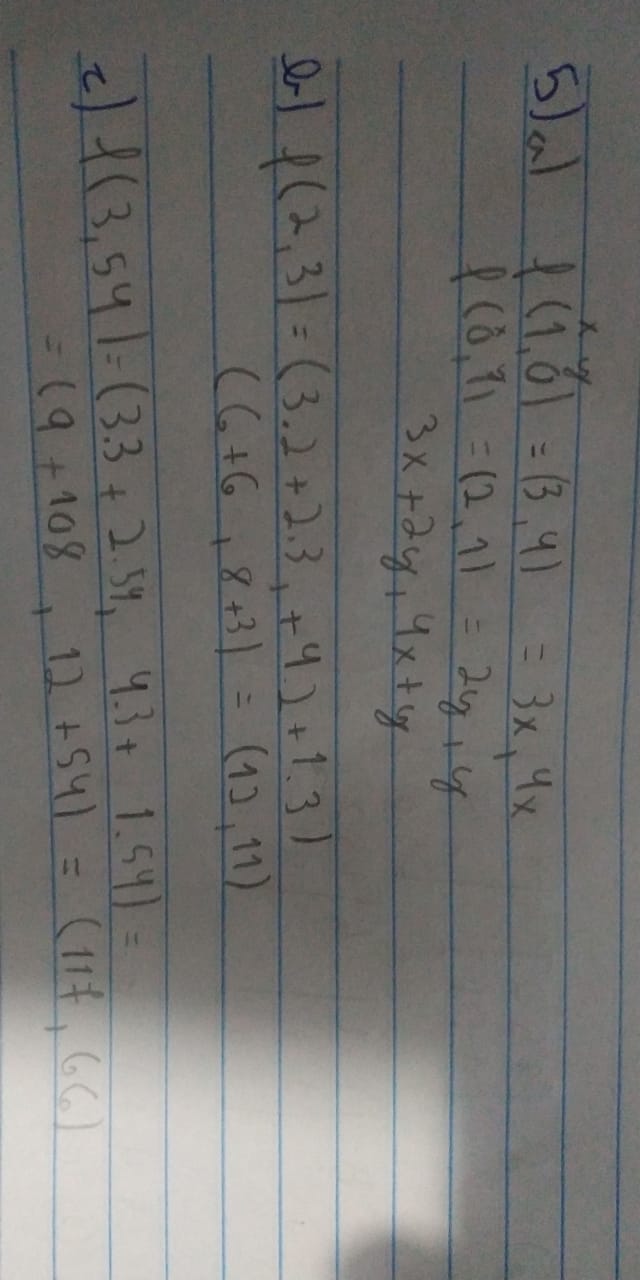 x y
5) a) f(1,0) = (3,4) = 3x, 4x
f(0,1) = (2,1) = 2y, y
3x+2y, 4x+y
b) f(2,3) = (3.2+2.3, +4.2+1.3)
(6+6, 8+3) = (12,11)
c) f(3,54) = (3.3 + 2.54, 4.3+ 1.54) =
= (9 +108, 12 +54) = (117, 66)